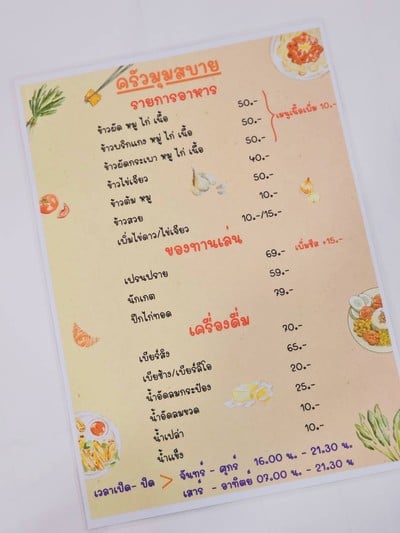 ครัวมุมสบาย
รายการอาหาร
ข้าวผัด หมู ไก่ เนื้อ 50.-
ข้าวพริกแกง หมู่ ไก่ เนื้อ 50.- เมนูเนื้อเพิ่ม 10.-
ข้าวผัดกระเพา หมู ไก่ เนื้อ 50.-
ข้าวไข่เจียว 40.-
ข้าวต้ม หมู 50.-
ข้าวสวย 10.-
เพิ่มไข่ดาว/ไข่เจียว 10.-/15.-
ของทานเล่น
เฟรนฟราย 69.- เพิ่มชีส +15.-
นักเกต 59.-
ปีกไก่ทอด 79.-
เครื่องดื่ม
เบียร์สิง 70.-
เบียช้าง/เบียร์ลีโอ 65.-
น้ำอัดลมกระป๋อง 20.-
น้ำอัดลมขวด 25.-
น้ำเปล่า 10.-
น้ำแข็ง 10.-
เวลาเปิด- ปิด > จันทร์ - ศุกร์ 16.00 น. - 21.30 น.
เสาร์ - อาทิตย์ 07.00 น. - 21.30 น